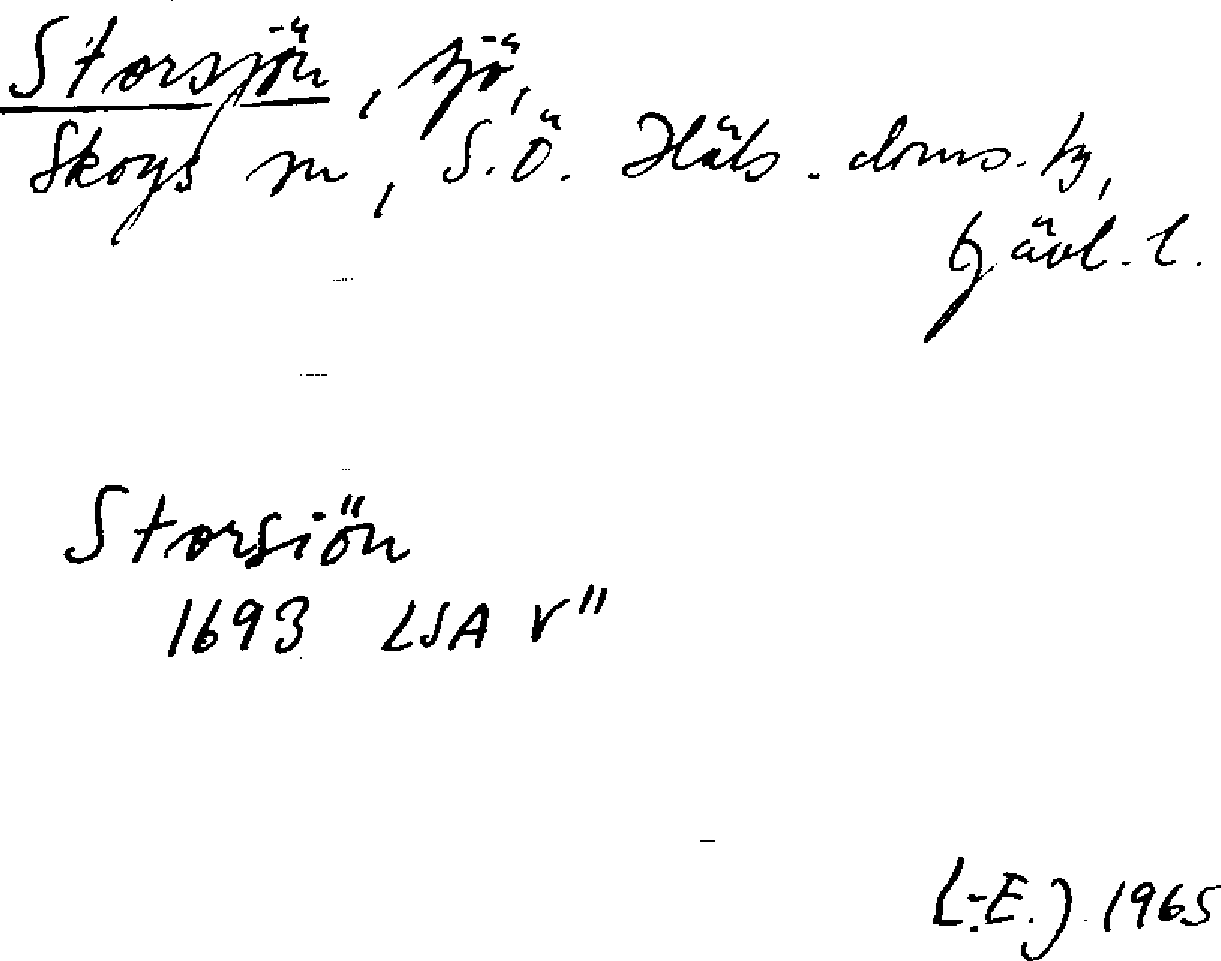 Storsjön, sjö,
Skogs sn, S.Ö. Häls. doms. tg,
Gävl. l.
Storsiön
1693 LSA V"
L-E.J. 1965